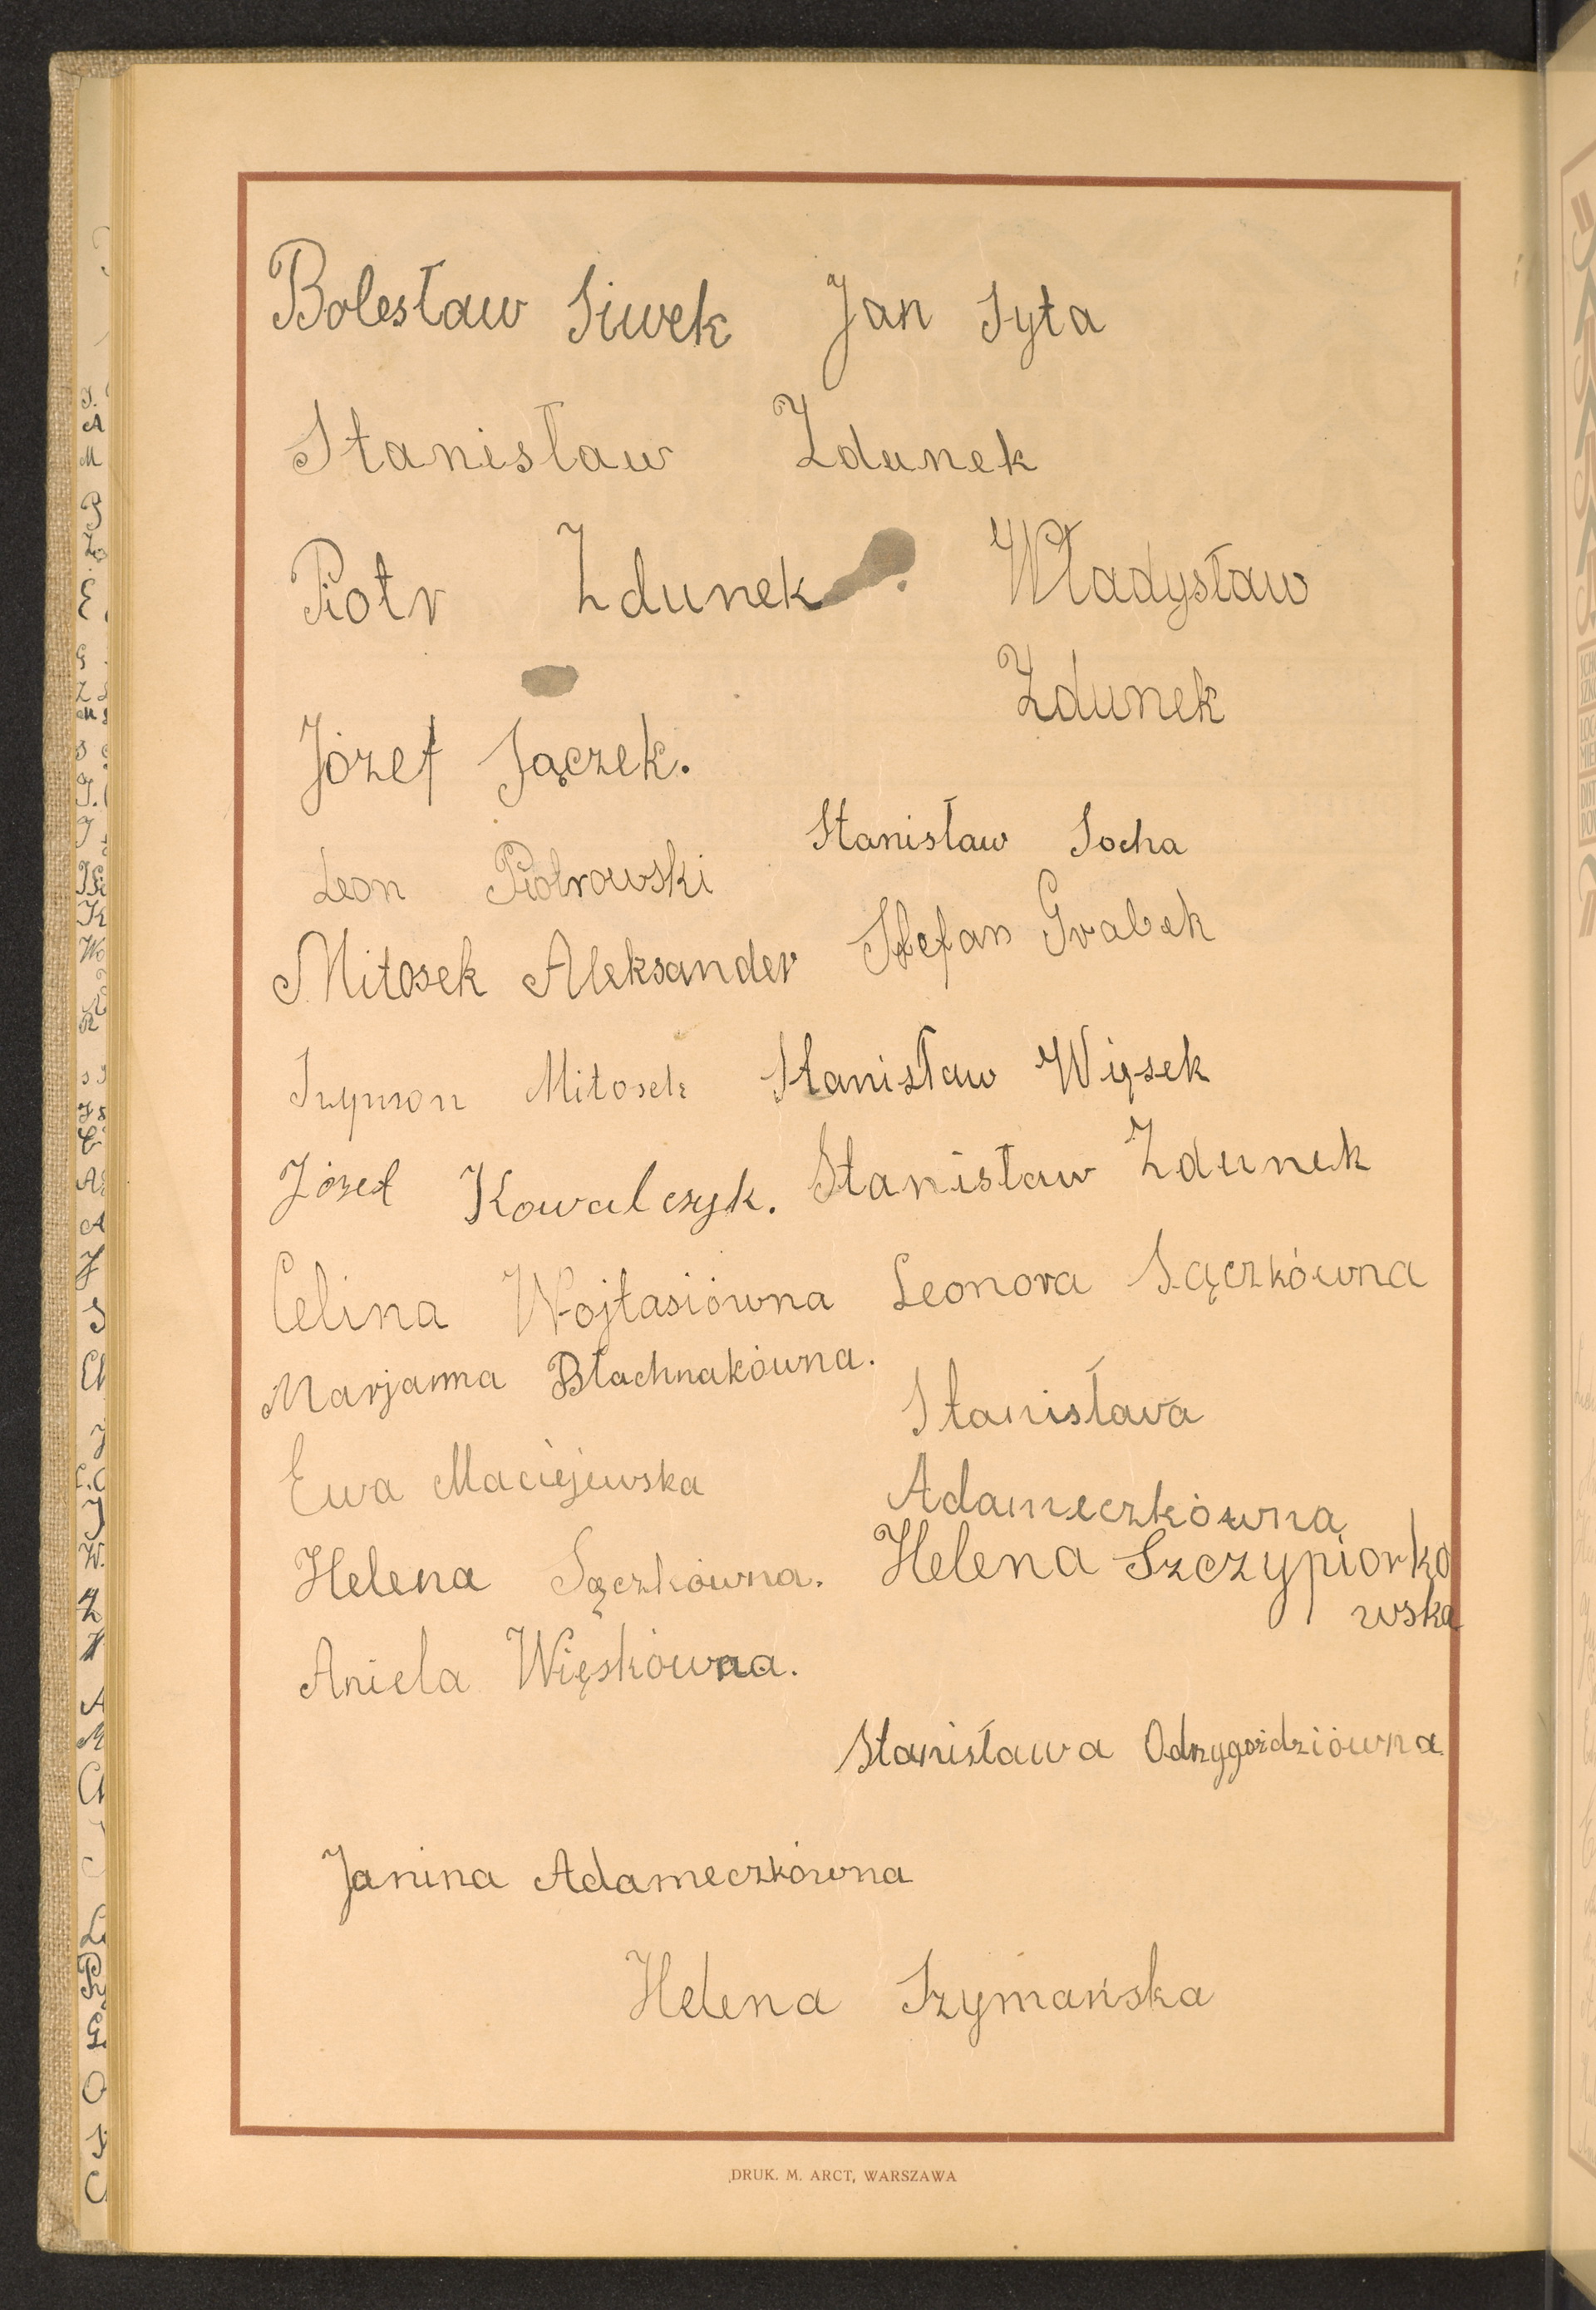 Bolesław Siwek Jan Syta
Stanisław Zdunek
Piotr Zdunek Władysław
Zdunek
Józef Sączek.
Stanisław Socha
Leon Piotrowski
Mitosek Aleksander Stefan Grabek
Szymon Mitosek Stanisław Więsek
Józef Kowalczyk. Stanisław Zdunek
Celina Wojtasiówna Leonora Sączkówna
Marjanna Błachnakówna.
Stanisława
Ewa Maciejewska
Adameczkówna
Helena Sączkówna. Helena Szczypiorko
wska
Aniela Więskówna.
Stanisława Odzygoździówna
Janina Adameczkówna
Helena Szymańska
DRUK. M. ARCT, WARSZAWA